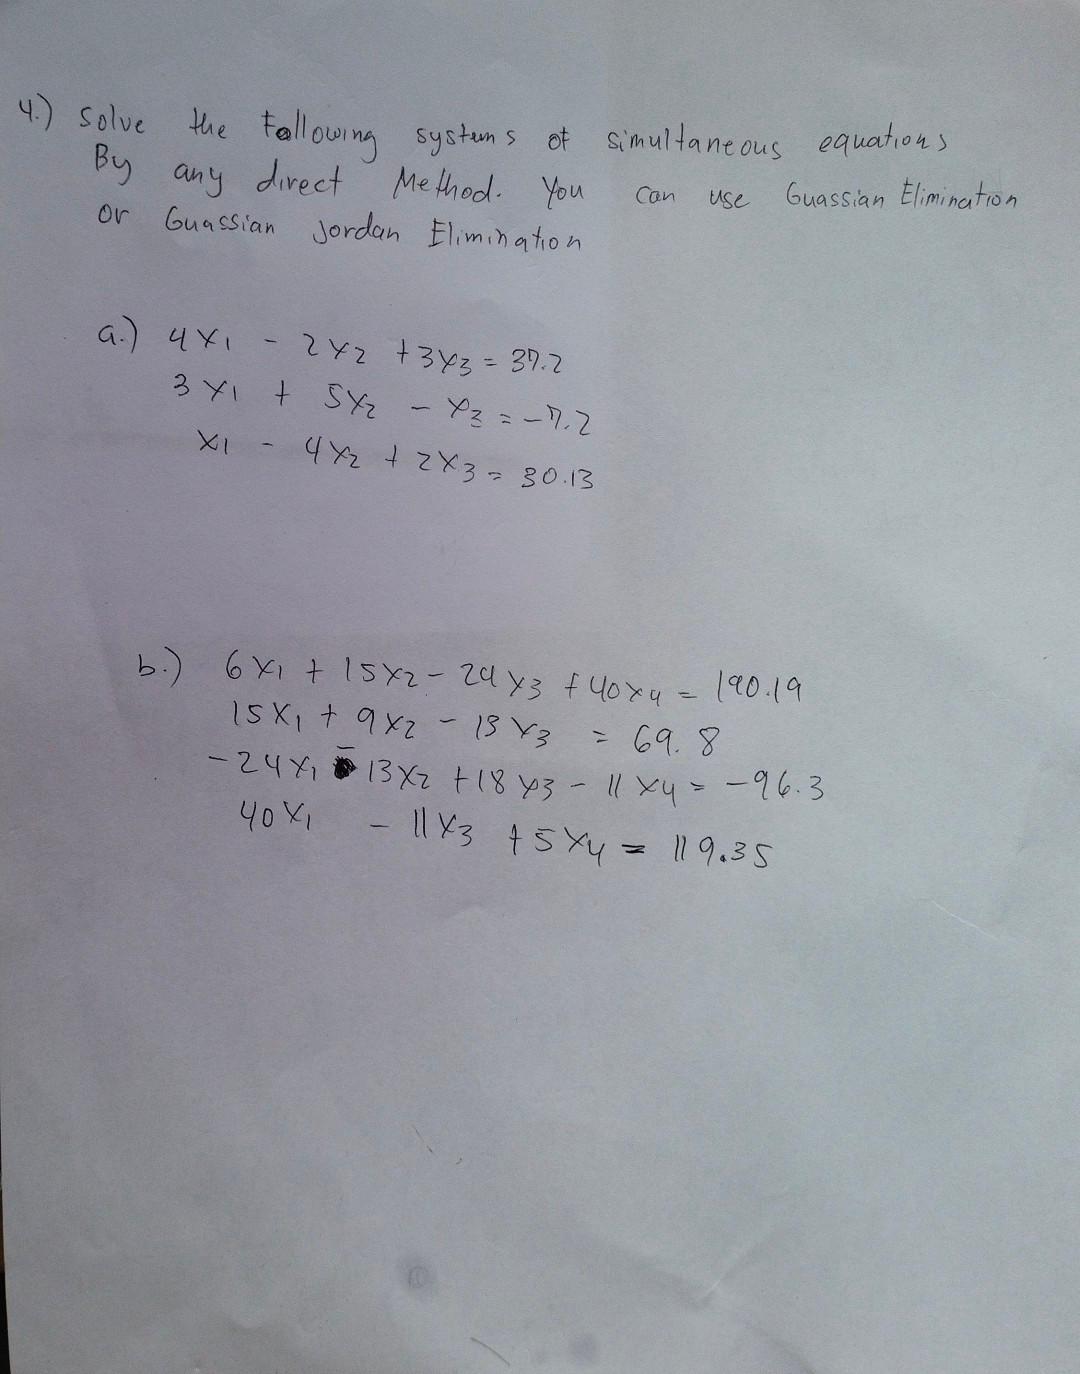 4.) Solve the Following systems of simultaneous equations
By any direct Method. You can use Guassian Elimination
or Guassian Jordan Elimination
a.) 4x1 - 2x2 + 3x3 = 37.2
3x1 + 5x2 - x3 = -7.2
x1 - 4x2 + 2x3 = 30.13
b.) 6x1 + 15x2 - 24x3 + 40x4 = 190.19
15x1 + 9x2 - 13x3 = 69.8
-24x1 - 13x2 + 18x3 - 11x4 = -96.3
40x1 - 11x3 + 5x4 = 119.35